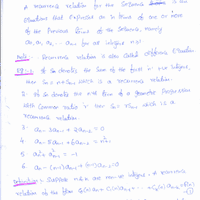 A recurrence relation for the Sequence is an
Equation that Expresses an in terms of one or more
of the Previous terms of the Sequence, namely
a0, a1, a2, ... an-1 for all integers n≥1
Note: Recurrence relation is also called difference Equation
Eg:- 1. If Sn denotes the Sum of the first n +ve integers,
then Sn = n + Sn-1 which is a recurrence relation.
2. If Sn denotes the nth term of a geometric Progression
with Common ratio r then Sn = r Sn-1 which is a
recurrence relation.
3. an - 3an-1 + 2an-2 = 0
4. an - 5an-1 + 6an-2 = n²
5. a²n + a²n-1 = -1
6. an - (n-1)an-1 + (n-1)an-2 = 0
Definition: Suppose n & k are non-ve integers, A recurrence
relation of the form C0(n)an + C1(n)an-1 + ... + Ck(n)an-k = f(n)